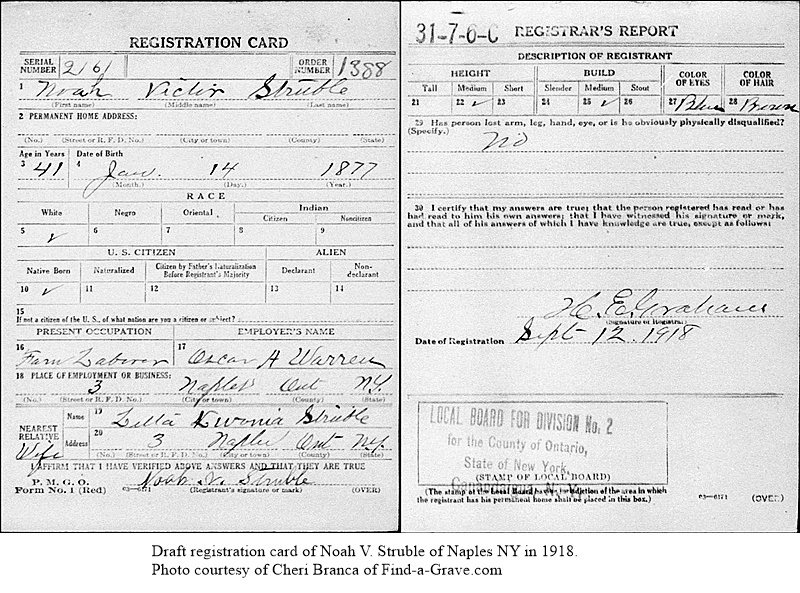 REGISTRATION CARD
SERIAL NUMBER 2161 ORDER NUMBER 1388
1 Noah Victor Struble
(First name) (Middle name) (Last name)
2 PERMANENT HOME ADDRESS:
(No.) (Street or R. F. D. No.) (City or town) (County) (State)
Age in Years Date of Birth
3 41 4 Jan. 14 1877
(Month.) (Day.) (Year.)
RACE
White Negro Oriental Indian
Citizen Noncitizen
5 ✓ 6 7 8 9
U. S. CITIZEN ALIEN
Native Born Naturalized Citizen by Father's Naturalization Before Registrant's Majority Declarant Non-declarant
10 ✓ 11 12 13 14
15
If not a citizen of the U. S., of what nation are you a citizen or subject?
PRESENT OCCUPATION EMPLOYER'S NAME
16 Farm Laborer 17 Oscar A Warren
18 PLACE OF EMPLOYMENT OR BUSINESS:
3 Naples Ont NY.
(No.) (Street or R. F. D. No.) (City or town) (County) (State)
NEAREST RELATIVE Name 19 Struble
Wife Address 20 3 Naples Ont NY
(No.) (Street or R. F. D. No.) (City or town) (County) (State)
I AFFIRM THAT I HAVE VERIFIED ABOVE ANSWERS AND THAT THEY ARE TRUE
P. M. G. O.
Form No. 1 (Red) 03-6171 Noah V. Struble
(Registrant's signature or mark) (OVER)
31-7-6-C REGISTRAR'S REPORT
DESCRIPTION OF REGISTRANT
HEIGHT BUILD COLOR OF EYES COLOR OF HAIR
Tall Medium Short Slender Medium Stout
21 22 ✓ 23 24 25 ✓ 26 27 Blue 28 Brown
29 Has person lost arm, leg, hand, eye, or is he obviously physically disqualified?
(Specify.) No
30 I certify that my answers are true; that the person registered has read or has
had read to him his own answers; that I have witnessed his signature or mark,
and that all of his answers of which I have knowledge are true, except as follows:
H. E. Graham
(Signature of Registrar)
Date of Registration Sept 12. 1918
LOCAL BOARD FOR DIVISION No. 2
for the County of Ontario,
State of New York,
(STAMP OF LOCAL BOARD)
Canandaigua, N. Y.
(The stamp of the Local Board having jurisdiction of the area in which
the registrant has his permanent home shall be placed in this box.)
03-6171 (OVER)
Draft registration card of Noah V. Struble of Naples NY in 1918.
Photo courtesy of Cheri Branca of Find-a-Grave.com